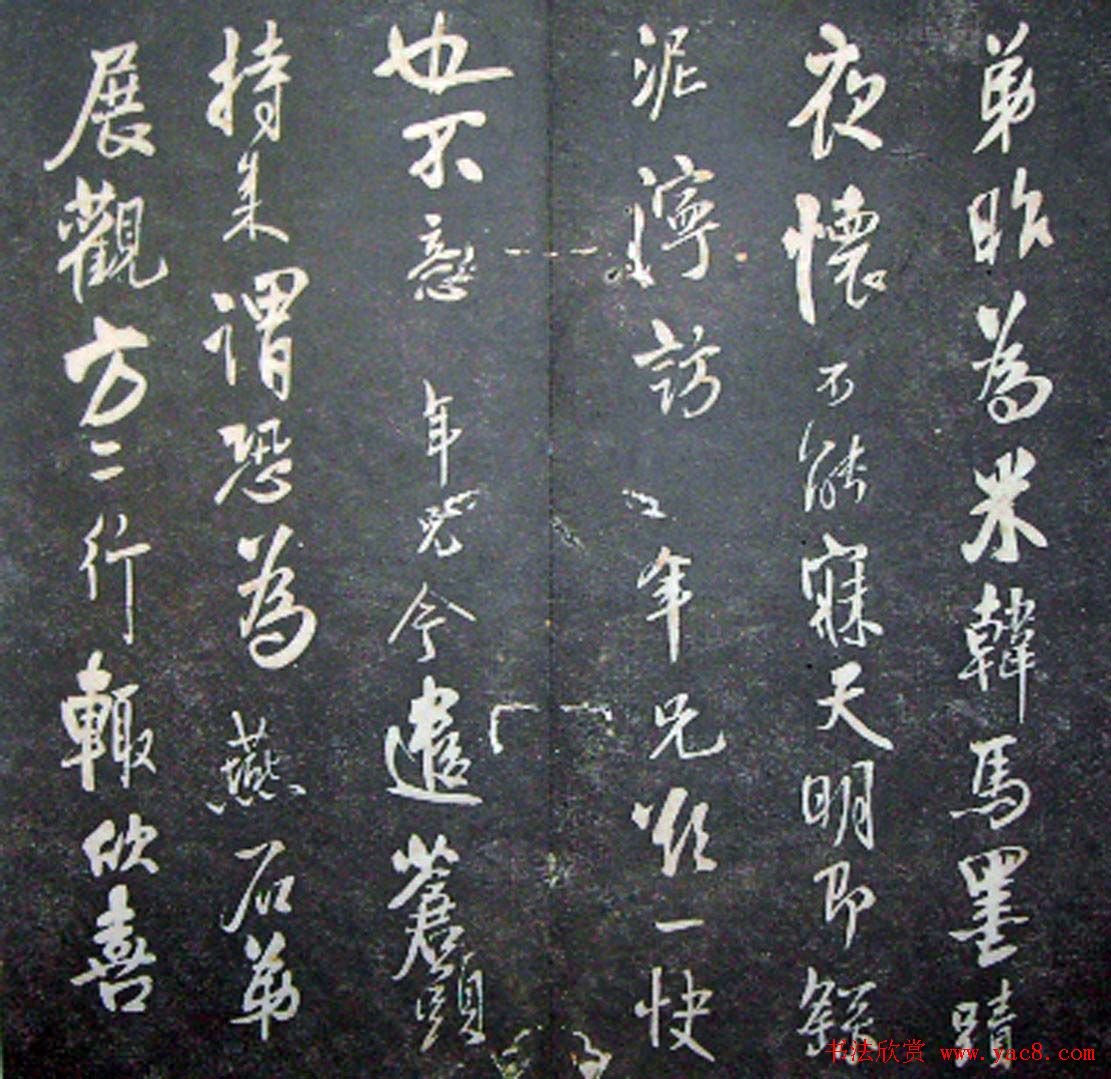 弟昨為米韓馬墨蹟
夜懷不能寐天明即
泥濘訪年兄一快
也不意年兄今遣蒼頭
持来謂恐為燕石弟
展觀方二行輙欣喜
书法欣赏 www.yac8.com